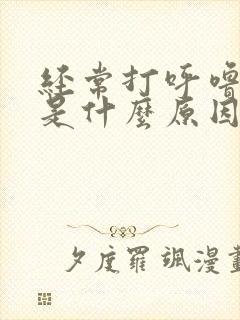 经常打呼噜
是什麼原因
夕度羅颯漫畫